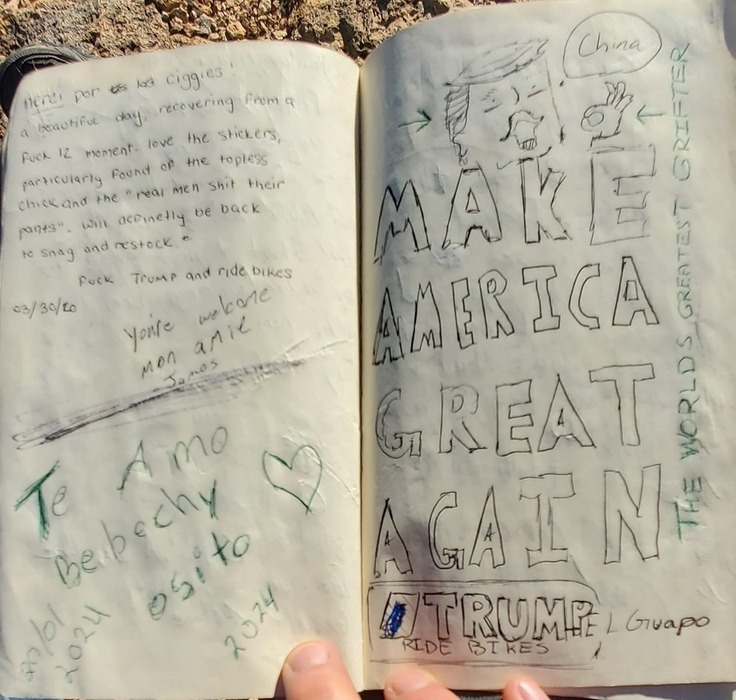 Here! por los ciggies!
a beautiful day, recovering from a
fuck 12 moment. love the stickers,
particularly found of the topless
chick and the "real men shit their
pants". will definetly be back
to snag and restock.
Fuck Trump and ride bikes
03/30/20
You're welcome
mon amie
James
Te Amo
Bebechy
osito
2024
2024
China
MAKE
AMERICA
GREAT
AGAIN
TRUMP
EL Guapo
RIDE BIKES
THE WORLDS GREATEST GRIFTER